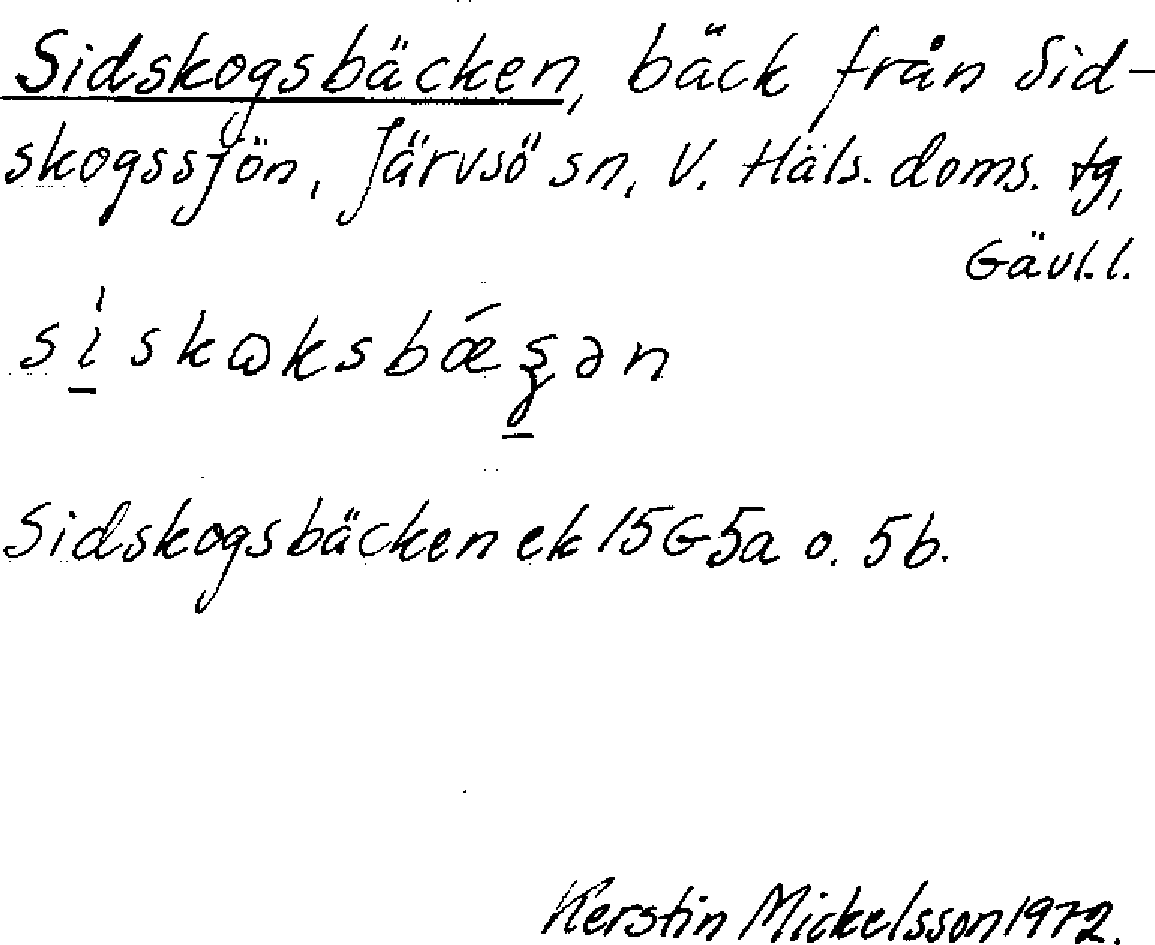 Sidskogsbäcken, bäck från Sid-
skogssjön, Järvsö sn, V. Häls. doms. tg,
Gävl. l.
Sidskogsbäcken ek 15G5a o. 5b.
Kerstin Mickelsson 1972.